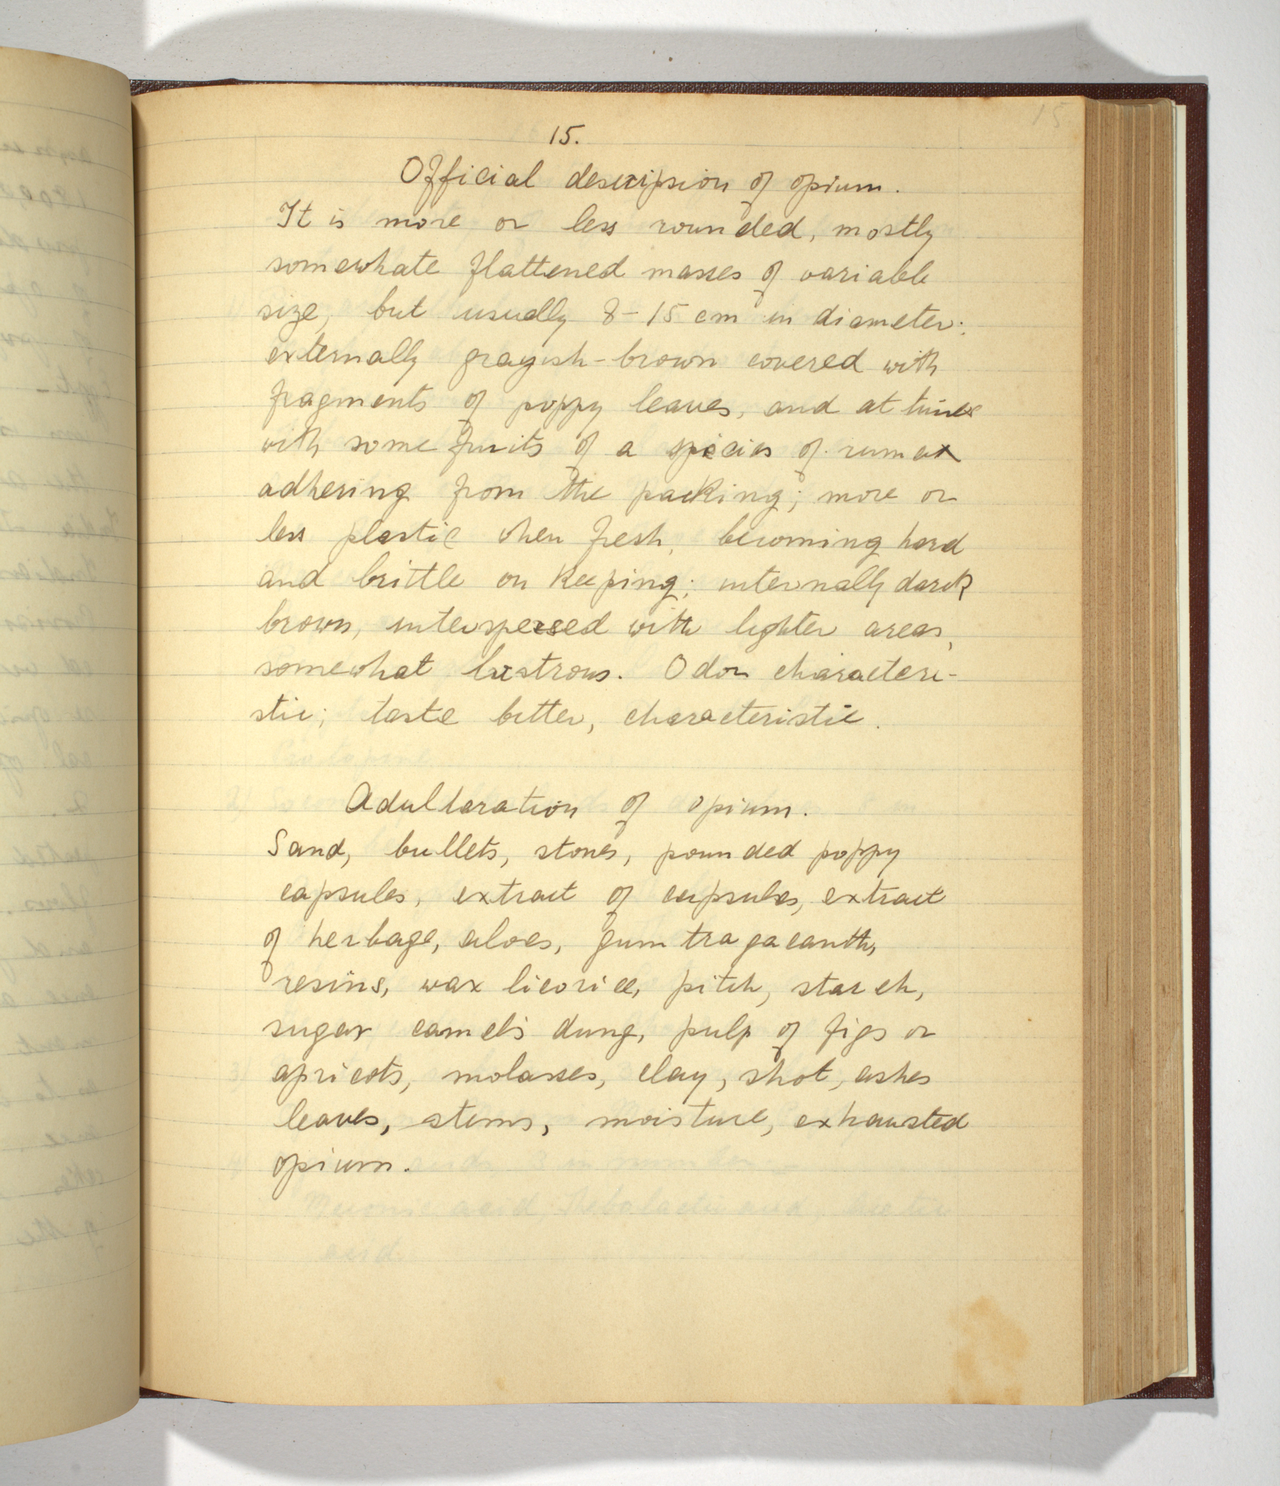 15
15.
Official description of opium.
It is more or less rounded, mostly
somewhate flattened masses of variable
size, but usually 8-15 cm in diameter;
externally grayish-brown covered with
fragments of poppy leaves, and at times
with some fruits of a species of rumex
adhering from the packing; more or
less plastic when fresh, becoming hard
and brittle on keeping; internally dark
brown, interspersed with lighter areas,
somewhat lustrous. Odor characteri-
stic; taste bitter, characteristic.
Adulteration of opium.
Sand, bullets, stones, pounded poppy
capsules, extract of capsules, extract
of herbage, aloes, gum tragacanth,
resins, wax licorice, pitch, starch,
sugar camel's dung, pulp of figs or
apricots, molasses, clay, shot, ashes
leaves, stems, moisture, exhausted
opium.